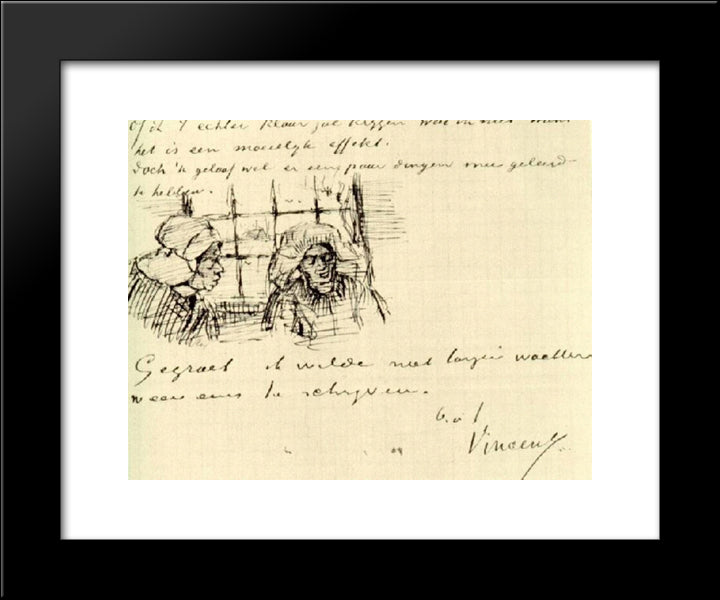 of ik 't echter klaar zal krijgen
het is een moeielyk effekt.
doch 'k geloof wel er een paar dingen mee geleerd
te hebben.
Gegroet ik wilde niet langer wachten
weer eens te schryven.
b. à t
Vincent